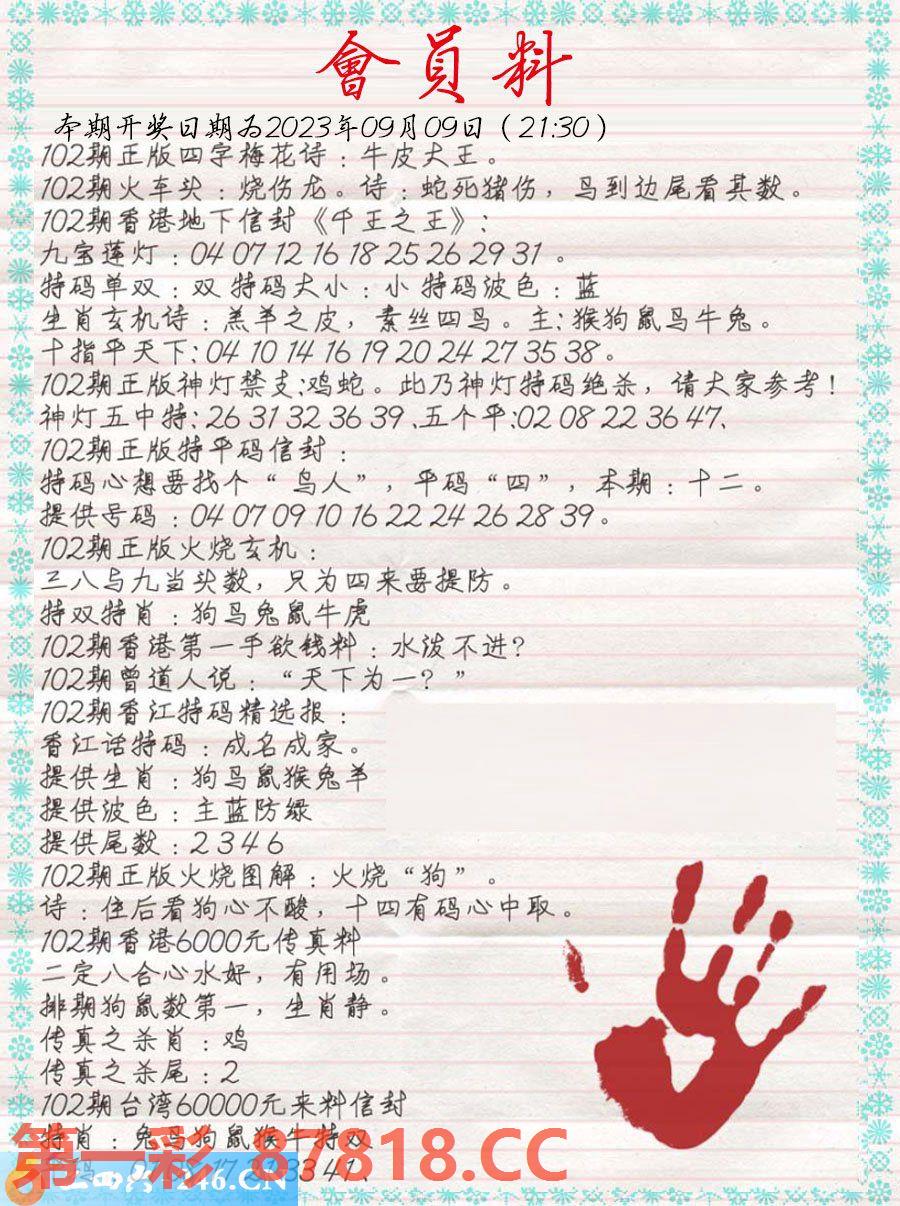 會員料
本期开奖日期为2023年09月09日（21:30）
102期正版四字梅花诗：牛皮大王。
102期火车头：烧伤龙。诗：蛇死猪伤，鸟到边尾看其数。
102期香港地下信封《千王之王》：
九宝莲灯：04 07 12 16 18 25 26 29 31 。
特码单双：双 特码大小：小 特码波色：蓝
生肖玄机诗：羔羊之皮，素丝四鸟。主：猴狗鼠鸟牛兔。
十指平天下：04 10 14 16 19 20 24 27 35 38。
102期正版神灯禁支：鸡蛇。此乃神灯特码绝杀，请大家参考！
神灯五中特：26 31 32 36 39、五个平：02 08 22 36 47、
102期正版特平码信封：
特码心想要找个“鸟人”，平码“四”，本期：十二。
提供号码：04 07 09 10 16 22 24 26 28 39。
102期正版火烧玄机：
三八与九当头数，只为四来要提防。
特双特肖：狗鸟兔鼠牛虎
102期香港第一手欲钱料：水泼不进？
102期曾道人说：“天下为一？”
102期香江特码精选报：
香江话特码：成名成家。
提供生肖：狗鸟鼠猴兔羊
提供波色：主蓝防绿
提供尾数：2 3 4 6
102期正版火烧图解：火烧“狗”。
诗：住后看狗心不酸，十四有码心中取。
102期香港6000元传真料
二定八合心水好，有用场。
排期狗鼠数第一，生肖静。
传真之杀肖：鸡
传真之杀尾：2
102期台湾60000元来料信封
特肖：兔鸟狗鼠猴牛特双
第一彩 87818.CC
246.CN
33 41、